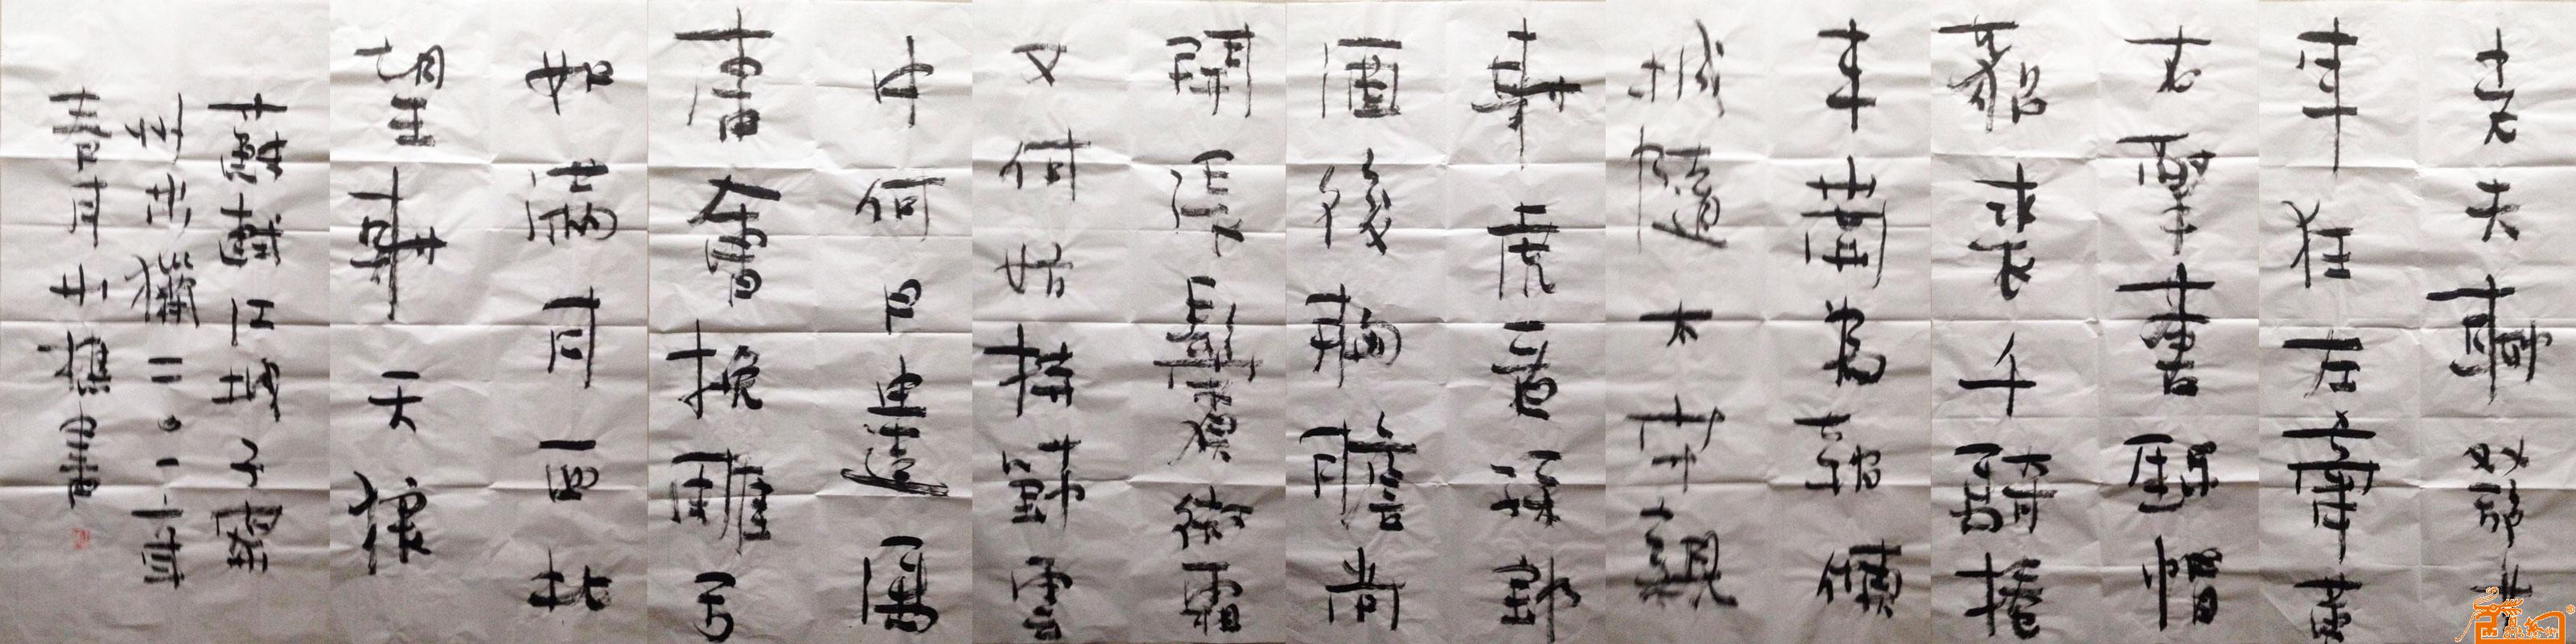 老夫聊發少
年狂左牽黃
右擎蒼錦帽
貂裘千騎捲
平岡為報傾
城隨太守親
射虎看孫郎
酒胸膽尚
開張鬢微霜
又何妨持節雲
中何日遣馮
唐會挽雕弓
如滿月西北
望射天狼
蘇軾江城子密
州出獵二〇一
春月書